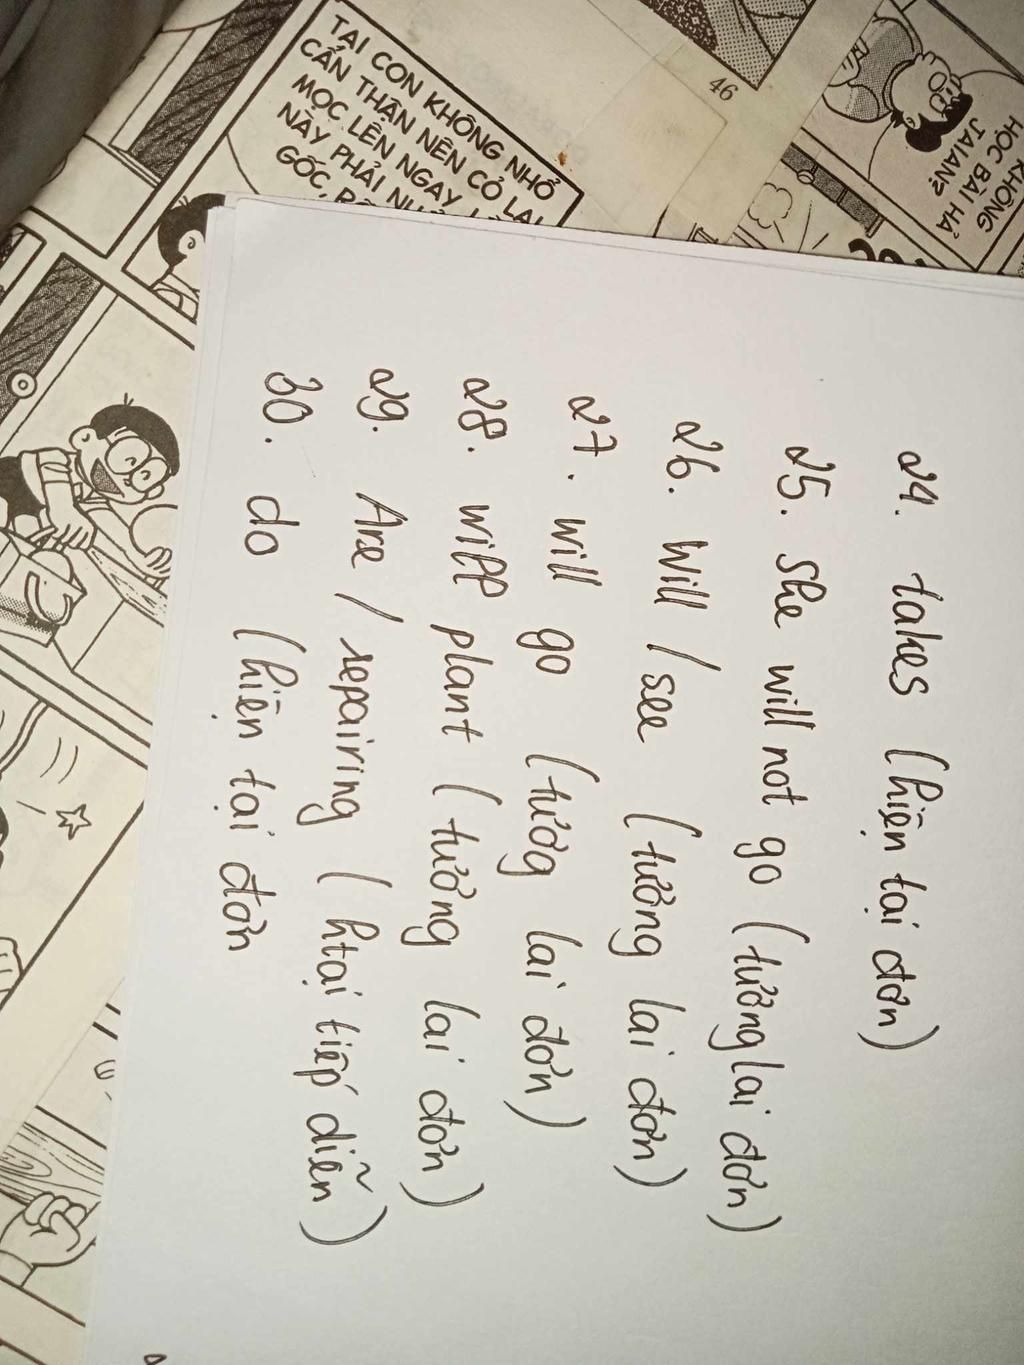 TẠI CON KHÔNG NHỔ
CẨN THẬN NÊN CỎ LẠI
MỌC LÊN NGAY.
NÀY PHẢI
GỐC,
46
KHÔNG
HỌC BÀI HẢ
JAIAN?
24. takes (hiện tại đơn)
25. She will not go (tương lai đơn)
26. Will / see (tương lai đơn)
27. will go (tươg lai đơn)
28. will plant (tương lai đơn)
29. Are / repairing (htại tiếp diễn)
30. do (hiện tại đơn